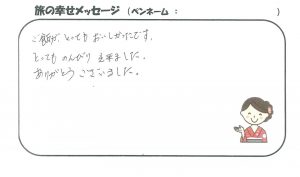 旅の幸せメッセージ （ペンネーム：　　　　　　　）
ご飯が、とっても おいしかったです。
とっても のんびり 出来ました。
ありがとう ございました。